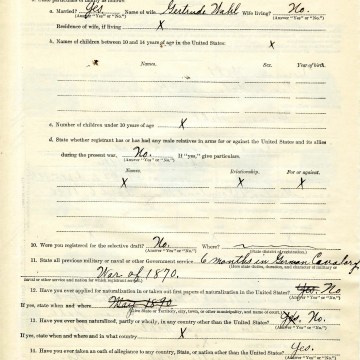 a. Married? Yes. Name of wife Gertrude Wahl Wife living? No.
(Answer "Yes" or "No.") (Answer "Yes" or "No.")
Residence of wife, if living X
b. Names of children between 10 and 14 years of age in the United States: X
Names. Sex. Year of birth.
c. Number of children under 10 years of age X
d. State whether registrant has or has had any male relatives in arms for or against the United States and its allies
during the present war. No. If "yes," give particulars.
(Answer "Yes" or "No.")
Names. Relationship. For or against.
X X X
10. Were you registered for the selective draft? No. Where?
(Answer "Yes" or "No.") (State district of registration.)
11. State all previous military or naval or other Government service. 6 months in German Cavalery
War of 1870.
naval or other service and nation for which registrant served.)
12. Have you ever applied for naturalization or taken out first papers of naturalization in the United States? Yes. No
(Answer "Yes" or "No.")
If yes, state when and where May 1890
13. Have you ever been naturalized, partly or wholly, in any country other than the United States? Yes. No.
(Answer "Yes" or "No.")
If yes, state when and where and in what country X
14. Have you ever taken an oath of allegiance to any country, State, or nation other than the United States? Yes.
(Answer "Yes" or "No.")